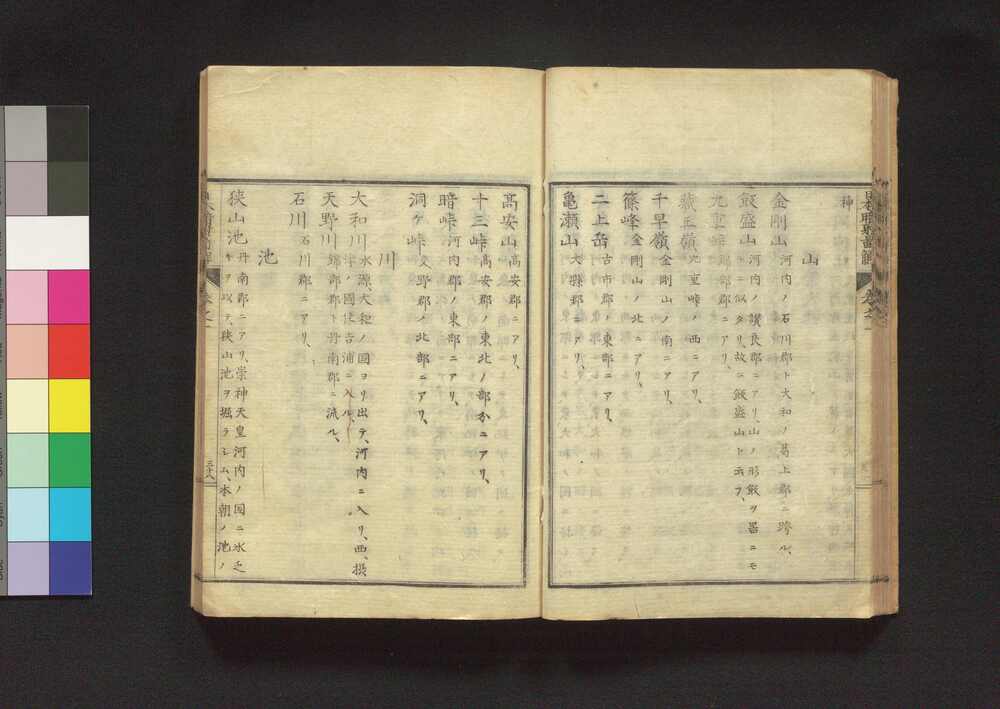 神
山
金剛山 河内ノ石川郡ト大和ノ葛上郡ニ跨ル、
飯盛山 河内ノ讃良郡ニアリ、山ノ形飯ヲ器ニモ
ルニ似タリ、故ニ飯盛山ト云フ、
九重峠 錦部郡ニアリ、
蔵王嶺 九重峠ノ西ニアリ、
千早嶺 金剛山ノ南ニアリ、
篠峰 金剛山ノ北ニアリ、
二上岳 古市郡ノ東部ニアリ、
亀瀬山 大縣郡ニアリ、
高安山 高安郡ニアリ、
十三峠 高安郡ノ東北ノ部分ニアリ、
暗峠 河内郡ノ東部ニアリ、
洞ケ峠 交野郡ノ北部ニアリ、
川
大和川 水源、大和ノ国ヨリ出テ、河内ニ入リ、西、摂
津ノ國住吉浦ニ入ル、
天野川 錦部郡ト丹南郡ニ流ル、
石川 石川郡ニアリ、
池
狭山池 丹南郡ニアリ、崇神天皇河内ノ国ニ水乏
キヲ以テ、狭山池ヲ堀ラシム、本朝ノ池ノ